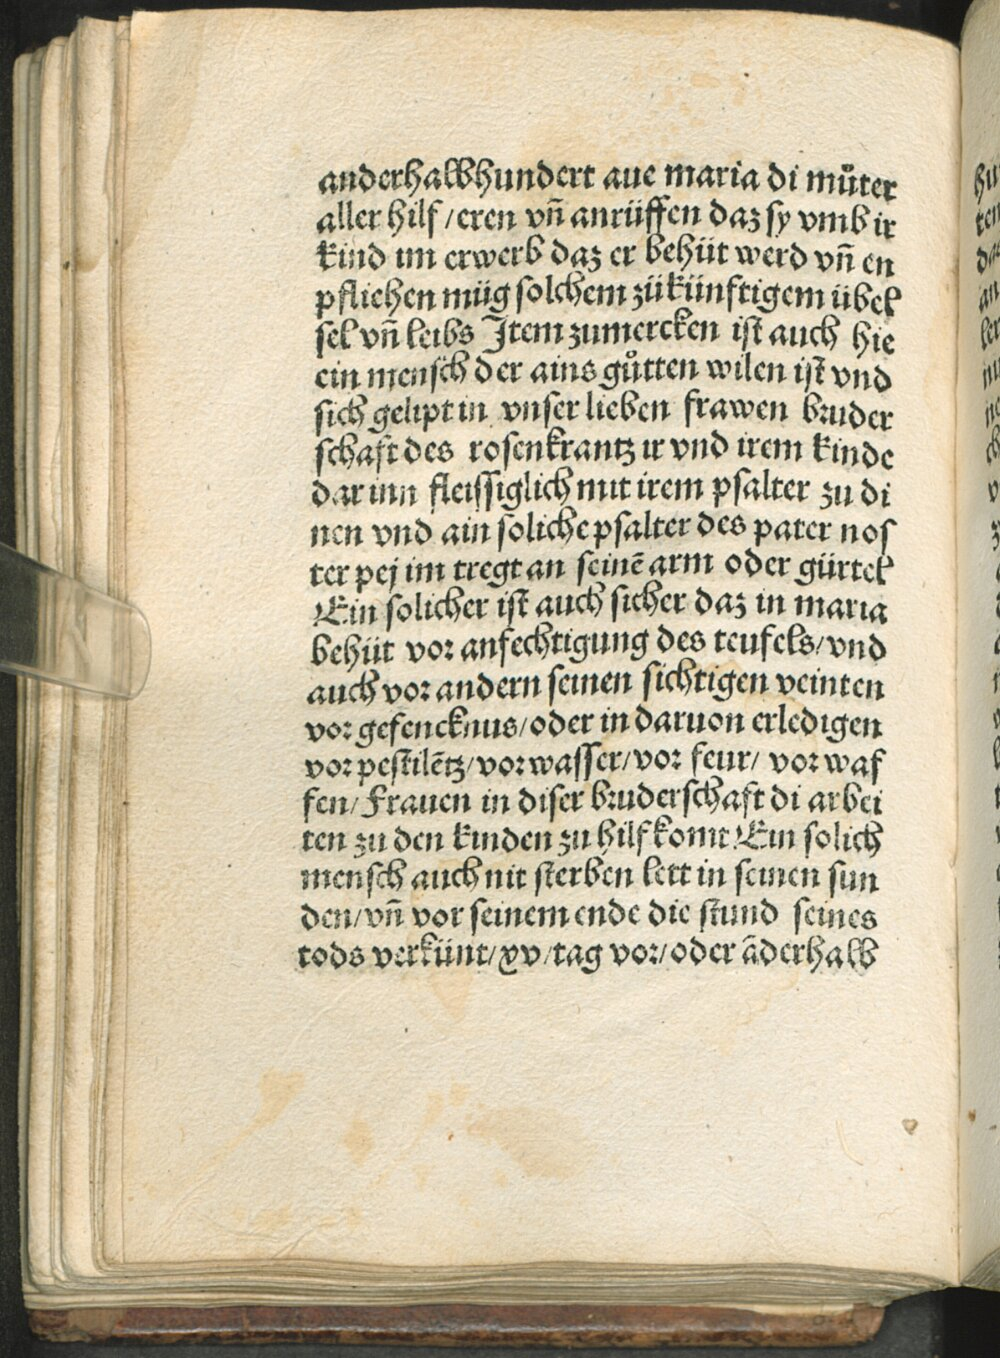 anderhalbhundert aue maria di můter
aller hilf/eren vñ anrüffen daz sy vmb ir
kind im erwerb daz er behüt werd vñ en
pfliehen müg solchem zükünftigem übel
sel vñ leibs Item zumercken ist auch hie
ein mensch der ains gůtten wilen ist vnd
sich gelipt in vnser lieben frawen bruder
schaft des rosenkrantz ir vnd irem kinde
dar inn fleissiglich mit irem psalter zu di
nen vnd ain soliche psalter des pater nos
ter pej im tregt an seinē arm oder gürtel
Ein solicher ist auch sicher daz in maria
behüt vor anfechtigung des teufels/vnd
auch vor andern seinen sichtigen veinten
vor gefencknus/oder in daruon erledigen
vor pestilētz/vor wasser/vor feur/ vor waf
fen/Frauen in diser bruderschaft di arbei
ten zu den kinden zu hilf komt Ein solich
mensch auch nit sterben lett in seinen sun
den/vñ vor seinem ende die stund seines
tods verkünt/xv/tag vor/oder āderhalb